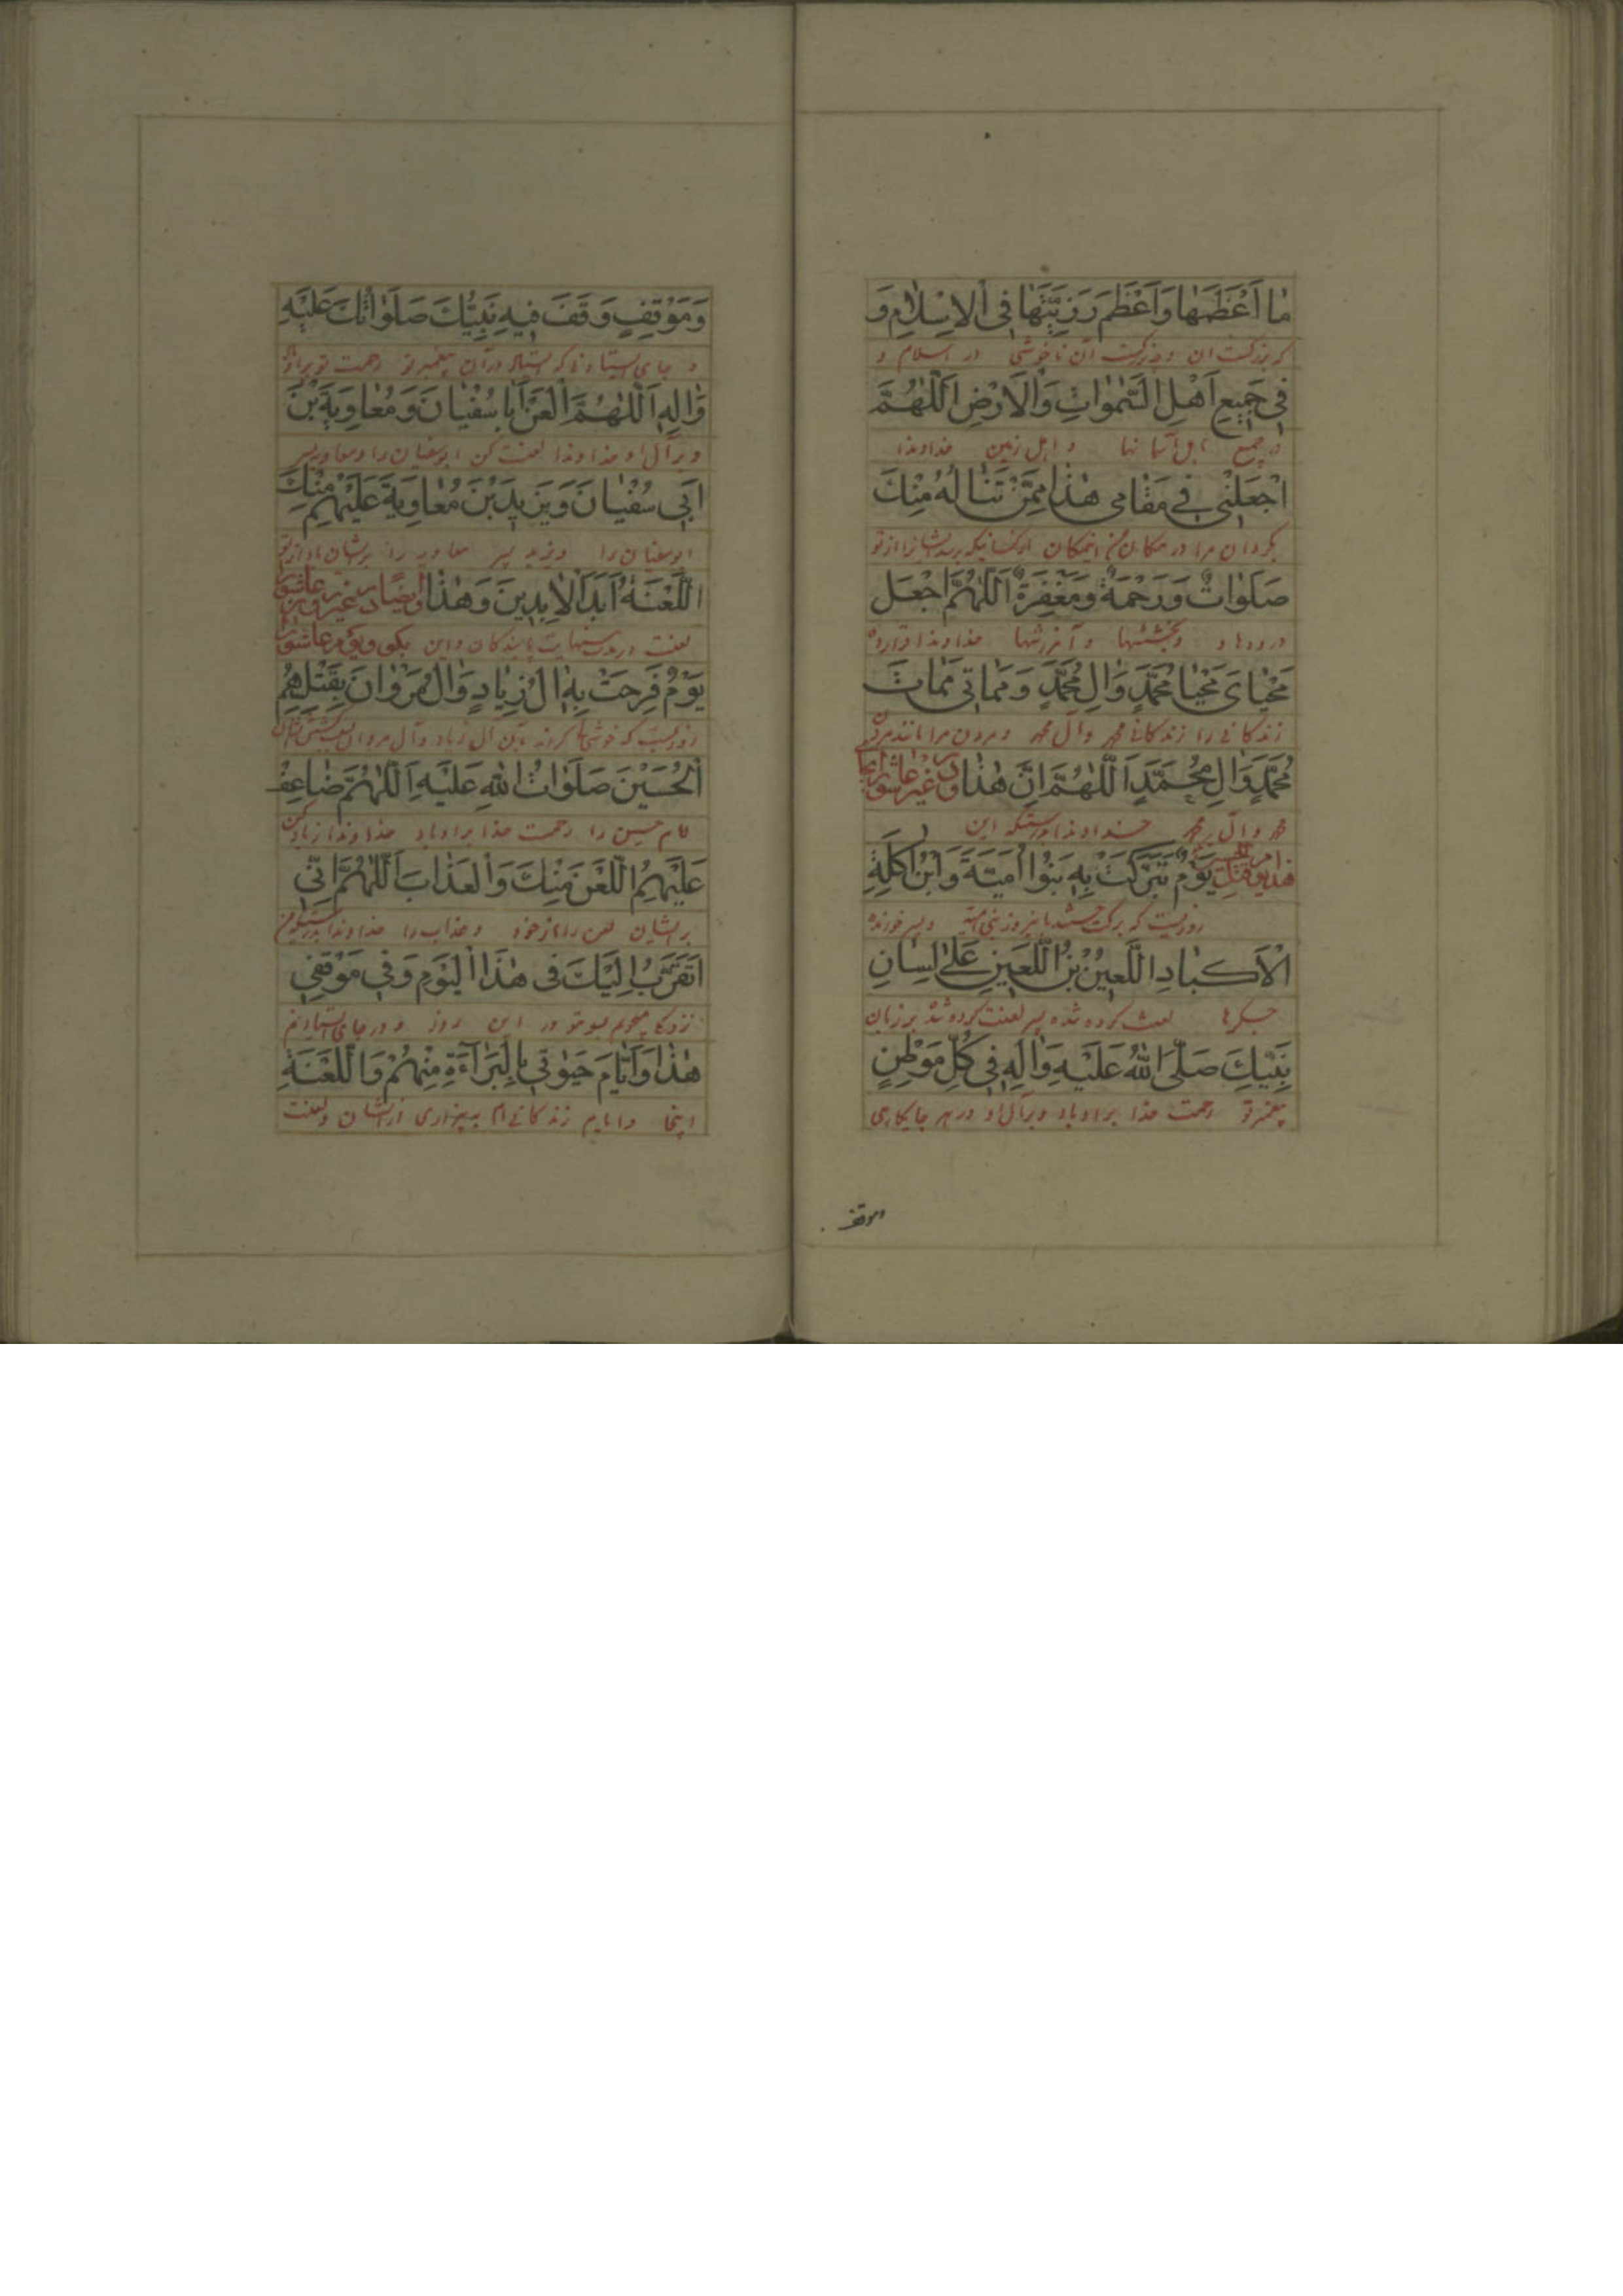 مٰا اَعْظَمَهٰا وَاَعْظَمَ رَزِيَّتَهٰا فِی الْاِسْلٰامِ وَ
که بزرکست ان و بزرکست آن ناخوشی در اسلام و
فِی جَمِيعِ اَهْلِ السَّمٰوٰاتِ وَالْاَرْضِ اَللّٰهُمَّ
در جمیع اهل آسمانها و اهل زمین خداوندا
اجْعَلْنِی فِی مَقٰامِی هٰذٰا مِمَّنْ تَنٰالُهُ مِنْكَ
بگردان مرا در مکان من اینمکان از کسانیکه برسد ایشانرا از تو
صَلَوٰاتٌ وَرَحْمَةٌ وَمَغْفِرَةٌ اَللّٰهُمَّ اجْعَلْ
درودها و بخششها و آمرزشها خداوندا قرار ده
مَحْيٰایَ مَحْيٰا مُحَمَّدٍ وَاٰلِ مُحَمَّدٍ وَمَمٰاتِی مَمٰاتَ
زندکانی را زندکانی محمد وآل محمد و مردن مرا مانند مردن
مُحَمَّدٍ وَاٰلِ مُحَمَّدٍ اَللّٰهُمَّ اِنَّ هٰذٰا ودر غیر عاشورا بجای
محمد وآل محمد خداوندا بدرستیکه این
هذا یوم قتل الحسین يَوْمٌ تَبَرَّكَتْ بِهِ بَنُوا اُمَيَّةَ وَابْنُ اٰكِلَةِ
روزیست که برکت جستند باین روز بنی امیه و پسر خورنده
الْاَكْبٰادِ اللَّعِينُ بْنُ اللَّعِينِ عَلیٰ لِسٰانِ
جکرها لعنت کرده شده پسر لعنت کرده شده بر زبان
نَبِيِّكَ صَلَّی اللهُ عَلَيْهِ وَاٰلِهِ فِی كُلِّ مَوْطِنٍ
پیغمبر تو رحمت خدا بر او باد و بر آل او در هر جایکاهی
وموقف
وَمَوْقِفٍ وَقَفَ فِيهِ نَبِيُّكَ صَلَوٰاتُكَ عَلَيْهِ
و جای ایستادنی که ایستاد در آن پیغمبر تو رحمت تو بر او
وَاٰلِهِ اَللّٰهُمَّ الْعَنْ اَبٰا سُفْيٰانَ وَمُعٰاوِيَةَ بْنَ
و بر آل او خداوندا لعنت کن ابوسفیان را و معاویه پسر
اَبِی سُفْيٰانَ وَيَزِيدَ بْنَ مُعٰاوِيَةَ عَلَيْهِمْ مِنْكَ
ابوسفیان را و یزید پسر معاویه را بر ایشان باد از تو
اللَّعْنَةُ اَبَدَ الْاٰبِدِينَ وَهٰذٰا وایضا در غیر روز عاشورا
لعنت پایندکان و این بکو ویوم عاشورا
يَوْمٌ فَرِحَتْ بِهِ اٰلُ زِيٰادٍ وَاٰلُ مَرْوٰانَ بِقَتْلِهِمُ
روزیست که خوشی کردند بآن آل زیاد وآل مروان بسبب کشتن ایشان
الْحُسَيْنَ صَلَوٰاتُ اللهِ عَلَيْهِ اَللّٰهُمَّ ضٰاعِفْ
امام حسین را رحمت خدا بر او باد خداوندا زیاد کن
عَلَيْهِمُ اللَّعْنَ مِنْكَ وَالْعَذٰابَ اَللّٰهُمَّ اِنِّی
بر ایشان لعن را از خود و عذاب را خداوندا بدرستیکه من
اَتَقَرَّبُ اِلَيْكَ فِی هٰذَا الْيَوْمِ وَفِی مَوْقِفِی
نزدیکی میجویم بسوی تو در این روز و در جای ایستادنم
هٰذٰا وَاَيّٰامِ حَيٰوتِی بِالْبَرٰاءَةِ مِنْهُمْ وَاللَّعْنَةِ
اینجا و ایام زندکانی ام به بیزاری از ایشان و لعنت